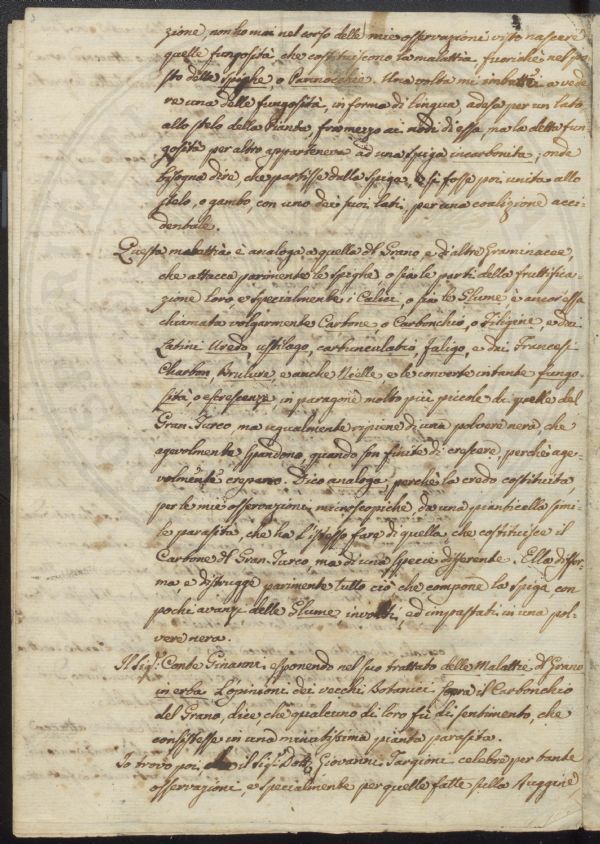 zione, non ho mai nel corso delle mie osservazioni visto nascere
quelle fungosità, che costituiscono la malattia, fuorichè nel po=
sto delle Spighe, o Pannocchie. Una volta mi imbattei a vede
re una delle fungosità, in forma di lingua, adesa per un lato
allo stelo della Pianta frammezzo ai nodi di essa, ma la detta fun
gosità per altro apparteneva ad una spiga incarbonita; onde
bisogna dire, che partisse dalla Spiga, e si fosse poi unita allo
stelo, o gambo, con uno dei suoi lati, per una coalizione acci
dentale.
Questa malattia è analoga a quella del Grano, e di altre Graminacee,
che attacca parimente le spighe, o sia le parti della fruttifica=
zione loro, e specialmente i Calici, o sia le Glume è ancor essa
chiamata volgarmente Carbone, o Carbonchio, o Filigine, e dai
Latini Uredo, ustilago, carbunculatio, faligo, e dai Francesi
Charbon, Brulure, e anche Nielle, e le converte in tante fungo
sità, o escrescenze, in paragone molto più piccole di quelle del
Gran-Turco, ma ugualmente ripiene di una polvere nera, che
agevolmente spandono, quando son finite di crescere, perchè age=
volmente crepano. Dico analoga, perchè la credo costituita,
per le mie osservazioni microscopiche, da una pianticella simi=
le parasita, che ha l'istesso fare di quella, che costituisce il
Carbone del Gran-Turco, ma di una specie differente. Ella diffor=
ma, e distrugge parimente tutto ciò che compone la spiga, con
pochi avanzi delle Glume involti, ed impastati in una pol=
vere nera.
Il Sig.r Conte Ginanni, esponendo nel suo trattato delle Malattie del Grano
in erba l'opinioni dei vecchi Botanici sopra il Carbonchio
del Grano, dice, che qualcuno di loro fù di sentimento, che
consistesse in una minutissima pianta parasita.
Io trovo poi, che il Sig.r Dott.r Giovanni Targioni celebre per tante
osservazioni, e specialmente per quelle fatte sulla Ruggine